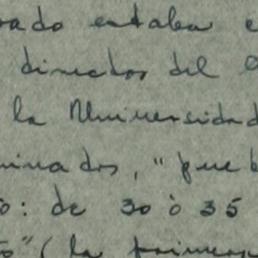 rado estaba e
directos del
la Universidad
minados, "que
o: de 30 ò 35
" (la primer